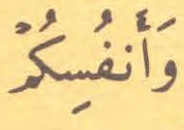 وَأَنفُسِكُمْ